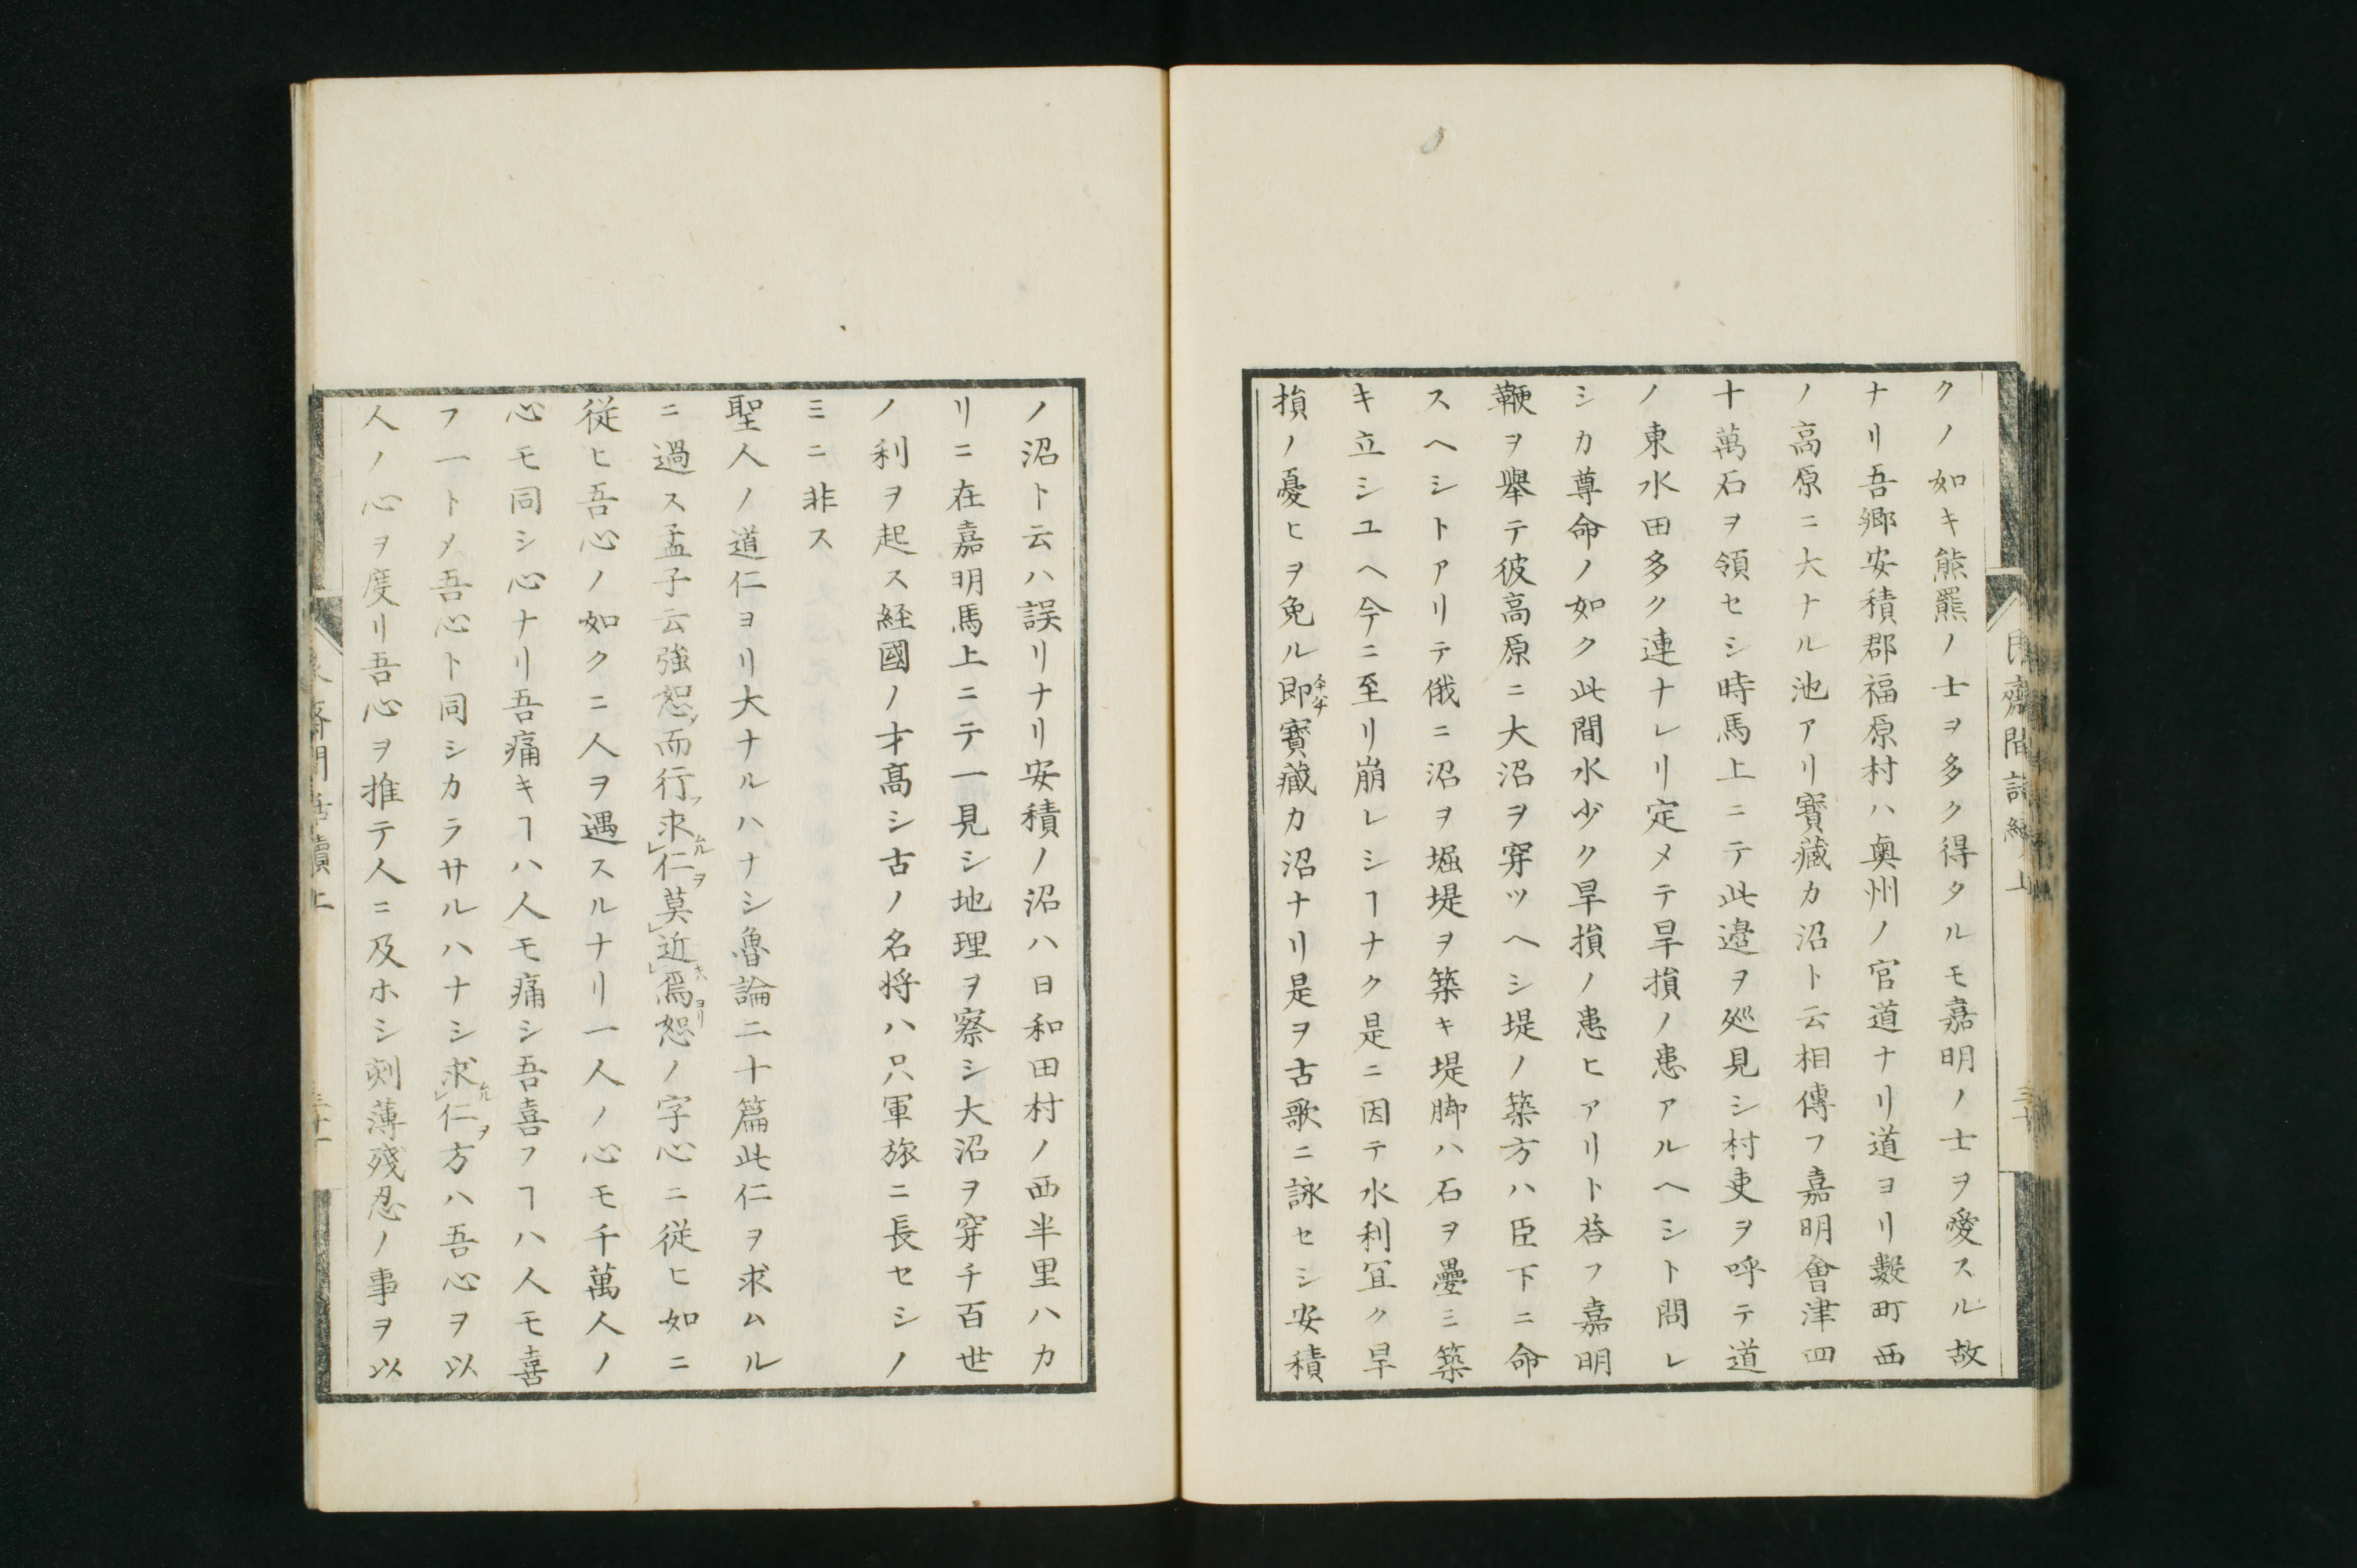 クノ如キ熊羆ノ士ヲ多ク得タルモ嘉明ノ士ヲ愛スル故
ナリ吾郷安積郡福原村ハ奥州ノ官道ナリ道ヨリ數町西
ノ高原ニ大ナル池アリ寳藏カ沼ト云相傳フ嘉明會津四
十萬石ヲ領セシ時馬上ニテ此邉ヲ廵見シ村吏ヲ呼テ道
ノ東水田多ク連ナレリ定メテ旱損ノ患アルヘシト問レ
シカ尊命ノ如ク此間水少ク旱損ノ患ヒアリト荅フ嘉明
鞭ヲ舉テ彼高原ニ大沼ヲ穿ツヘシ堤ノ築方ハ臣下ニ命
スヘシトアリテ俄ニ沼ヲ堀堤ヲ築キ堤脚ハ石ヲ疊ミ築
キ立シユヘ今ニ至リ崩レシヿナク是ニ因テ水利冝ク旱
損ノ憂ヒヲ免ル即寳藏カ沼ナリ是ヲ古歌ニ詠セシ安積
ノ沼ト云ハ誤リナリ安積ノ沼ハ日和田村ノ西半里ハカ
リニ在嘉明馬上ニテ一見シ地理ヲ察シ大沼ヲ穿チ百世
ノ利ヲ起ス経國ノ才髙シ古ノ名将ハ只軍旅ニ長セシノ
ミニ非ス
聖人ノ道仁ヨリ大ナルハナシ魯論二十篇此仁ヲ求ムル
ニ過ス孟子云強恕ノ而行フ求ムルレ仁ヲ莫レ近キレ焉ヨリ恕ノ字心ニ従ヒ如ニ
従ヒ吾心ノ如クニ人ヲ遇スルナリ一人ノ心モ千萬人ノ
心モ同シ心ナリ吾痛キヿハ人モ痛シ吾喜フヿハ人モ喜
フ一トメ吾心ト同シカラサルハナシ求ムルレ仁ヲ方ハ吾心ヲ以
人ノ心ヲ度リ吾心ヲ推テ人ニ及ホシ刻薄殘忍ノ事ヲ以